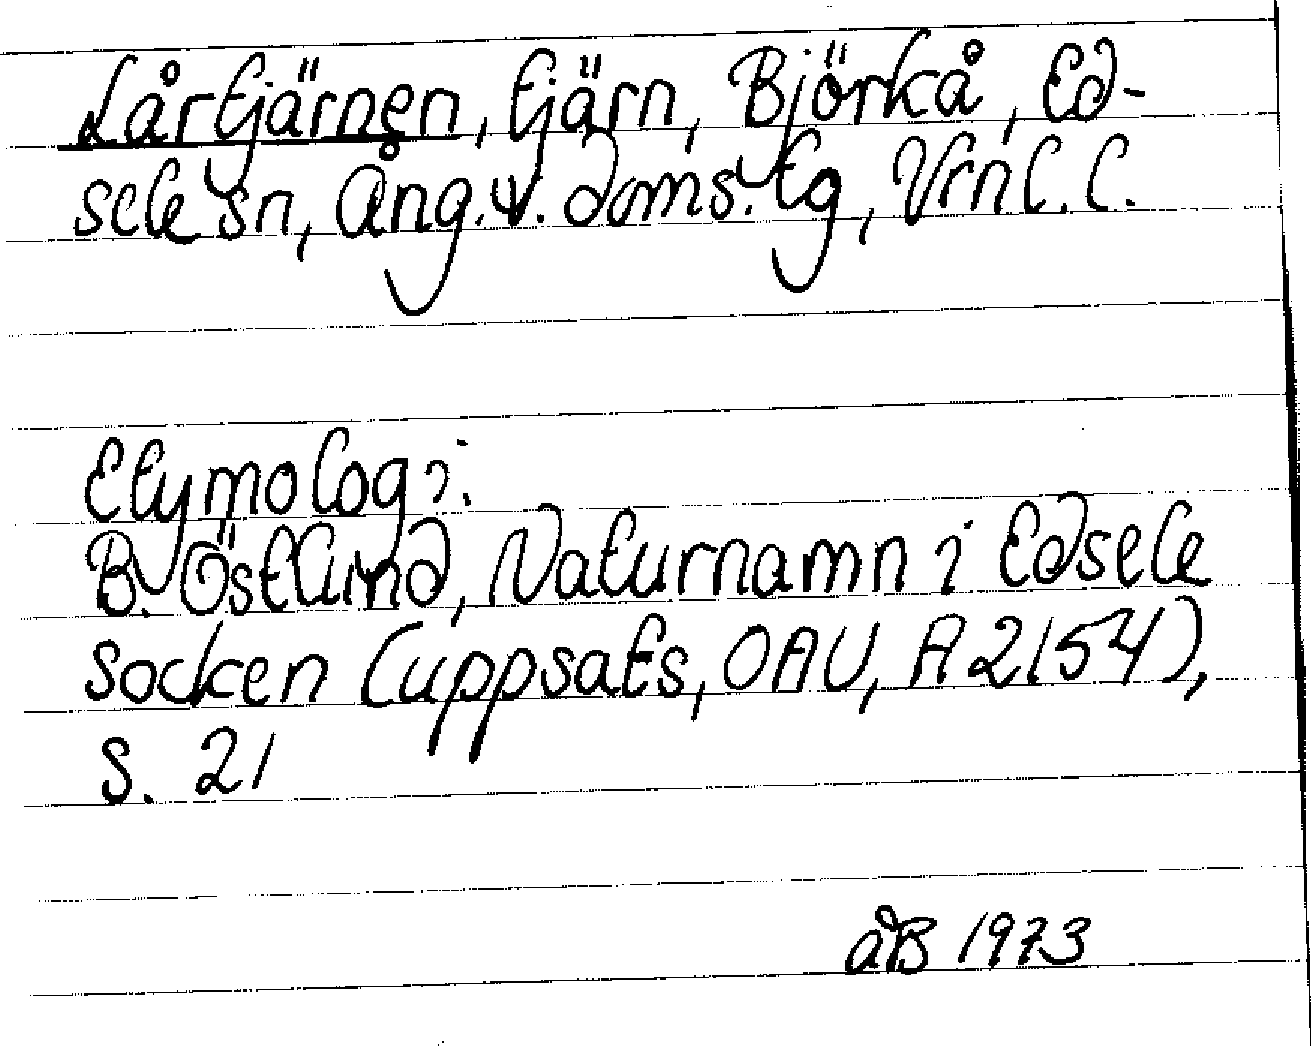 Lårtjärnen, tjärn, Björkå, Ed-
sele sn, Ång.v. doms.tg, Vrnl. l.
Etymologi:
B. Östlund, Naturnamn i Edsele
socken (uppsats, OAU, A 2154),
s. 21
åB 1973